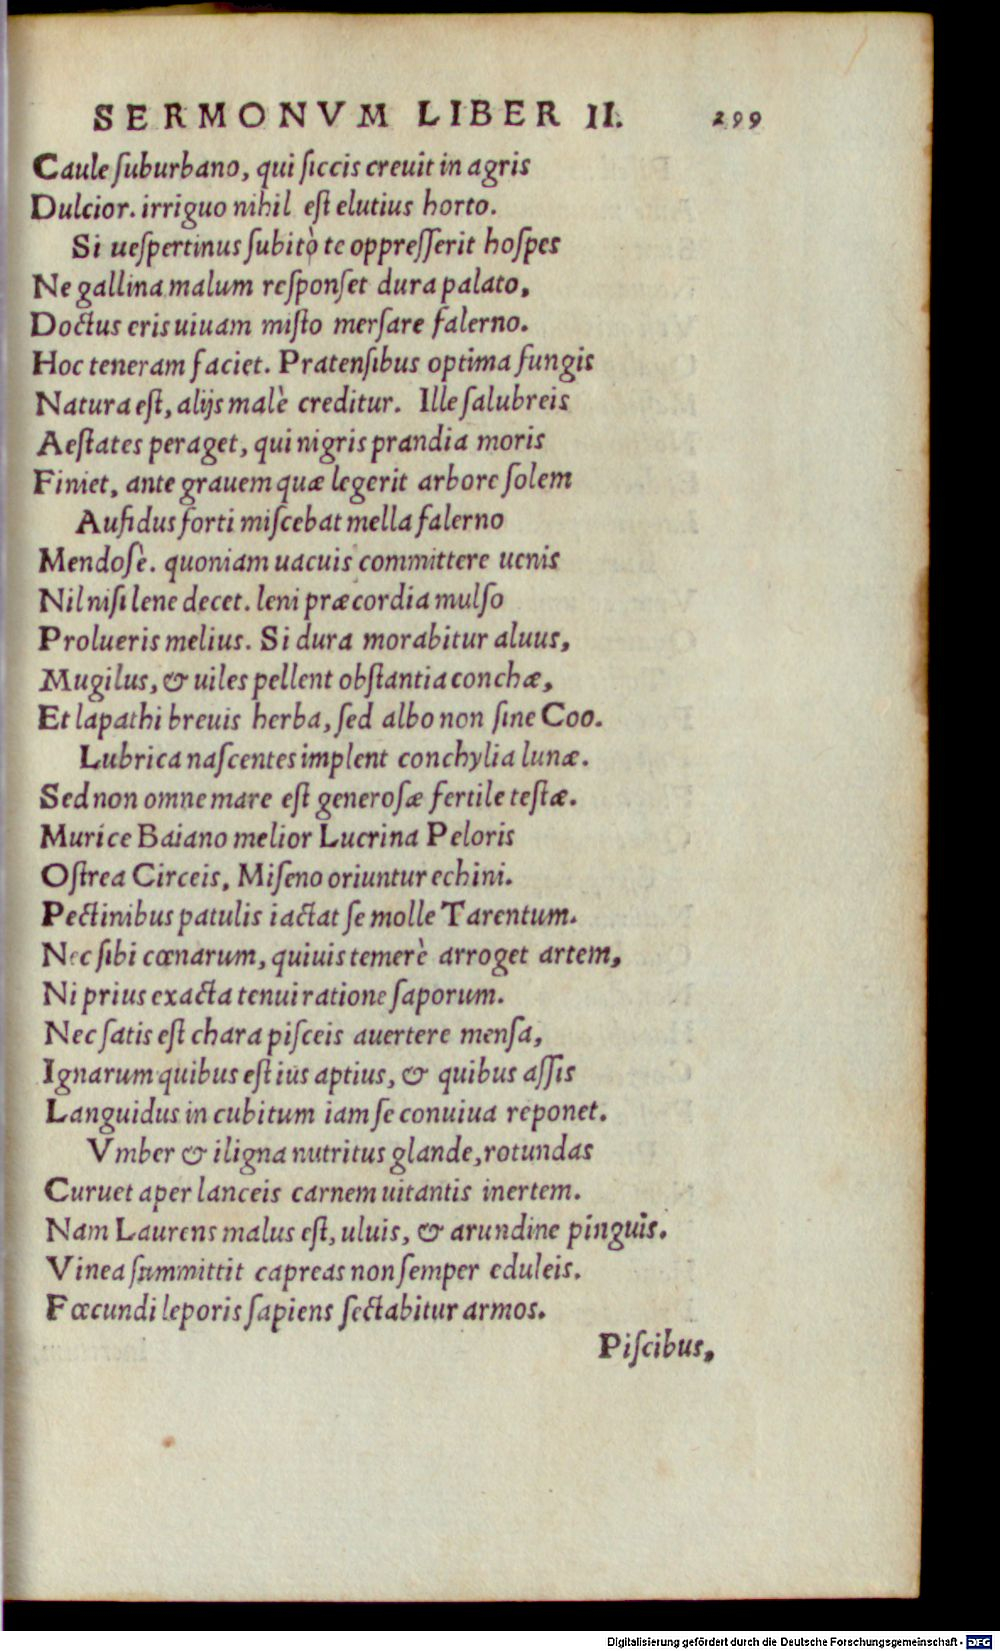 SERMONVM LIBER II. 299
Caule ſuburbano, qui ſiccis creuit in agris
Dulcior. irriguo nihil eſt elutius horto.
Si ueſpertinus ſubitò te oppreſſerit hoſpes
Ne gallina malum reſponſet dura palato,
Doctus eris uiuam miſto merſare falerno.
Hoc teneram faciet. Pratenſibus optima fungis
Natura eſt, alijs malè creditur. Ille ſalubreis
Aeſtates peraget, qui nigris prandia moris
Finiet, ante grauem quæ legerit arbore ſolem
Aufidus forti miſcebat mella falerno
Mendoſè. quoniam uacuis committere uenis
Nil niſi lene decet. leni præcordia mulſo
Prolueris melius. Si dura morabitur aluus,
Mugilus, & uiles pellent obſtantia conchæ,
Et lapathi breuis herba, ſed albo non ſine Coo.
Lubrica naſcentes implent conchylia lunæ.
Sed non omne mare eſt generoſæ fertile teſtæ.
Murice Baiano melior Lucrina Peloris
Oſtrea Circeis, Miſeno oriuntur echini.
Pectinibus patulis iactat ſe molle Tarentum.
Nec ſibi cœnarum, quiuis temerè arroget artem,
Ni prius exacta tenui ratione ſaporum.
Nec ſatis eſt chara piſceis auertere menſa,
Ignarum quibus eſt ius aptius, & quibus aſſis
Languidus in cubitum iam ſe conuiua reponet.
Vmber & iligna nutritus glande, rotundas
Curuet aper lanceis carnem uitantis inertem.
Nam Laurens malus eſt, uluis, & arundine pinguis.
Vinea ſummittit capreas non ſemper eduleis.
Fœcundi leporis ſapiens ſectabitur armos.
Piſcibus,
Digitalisierung gefördert durch die Deutsche Forschungsgemeinschaft - DFG